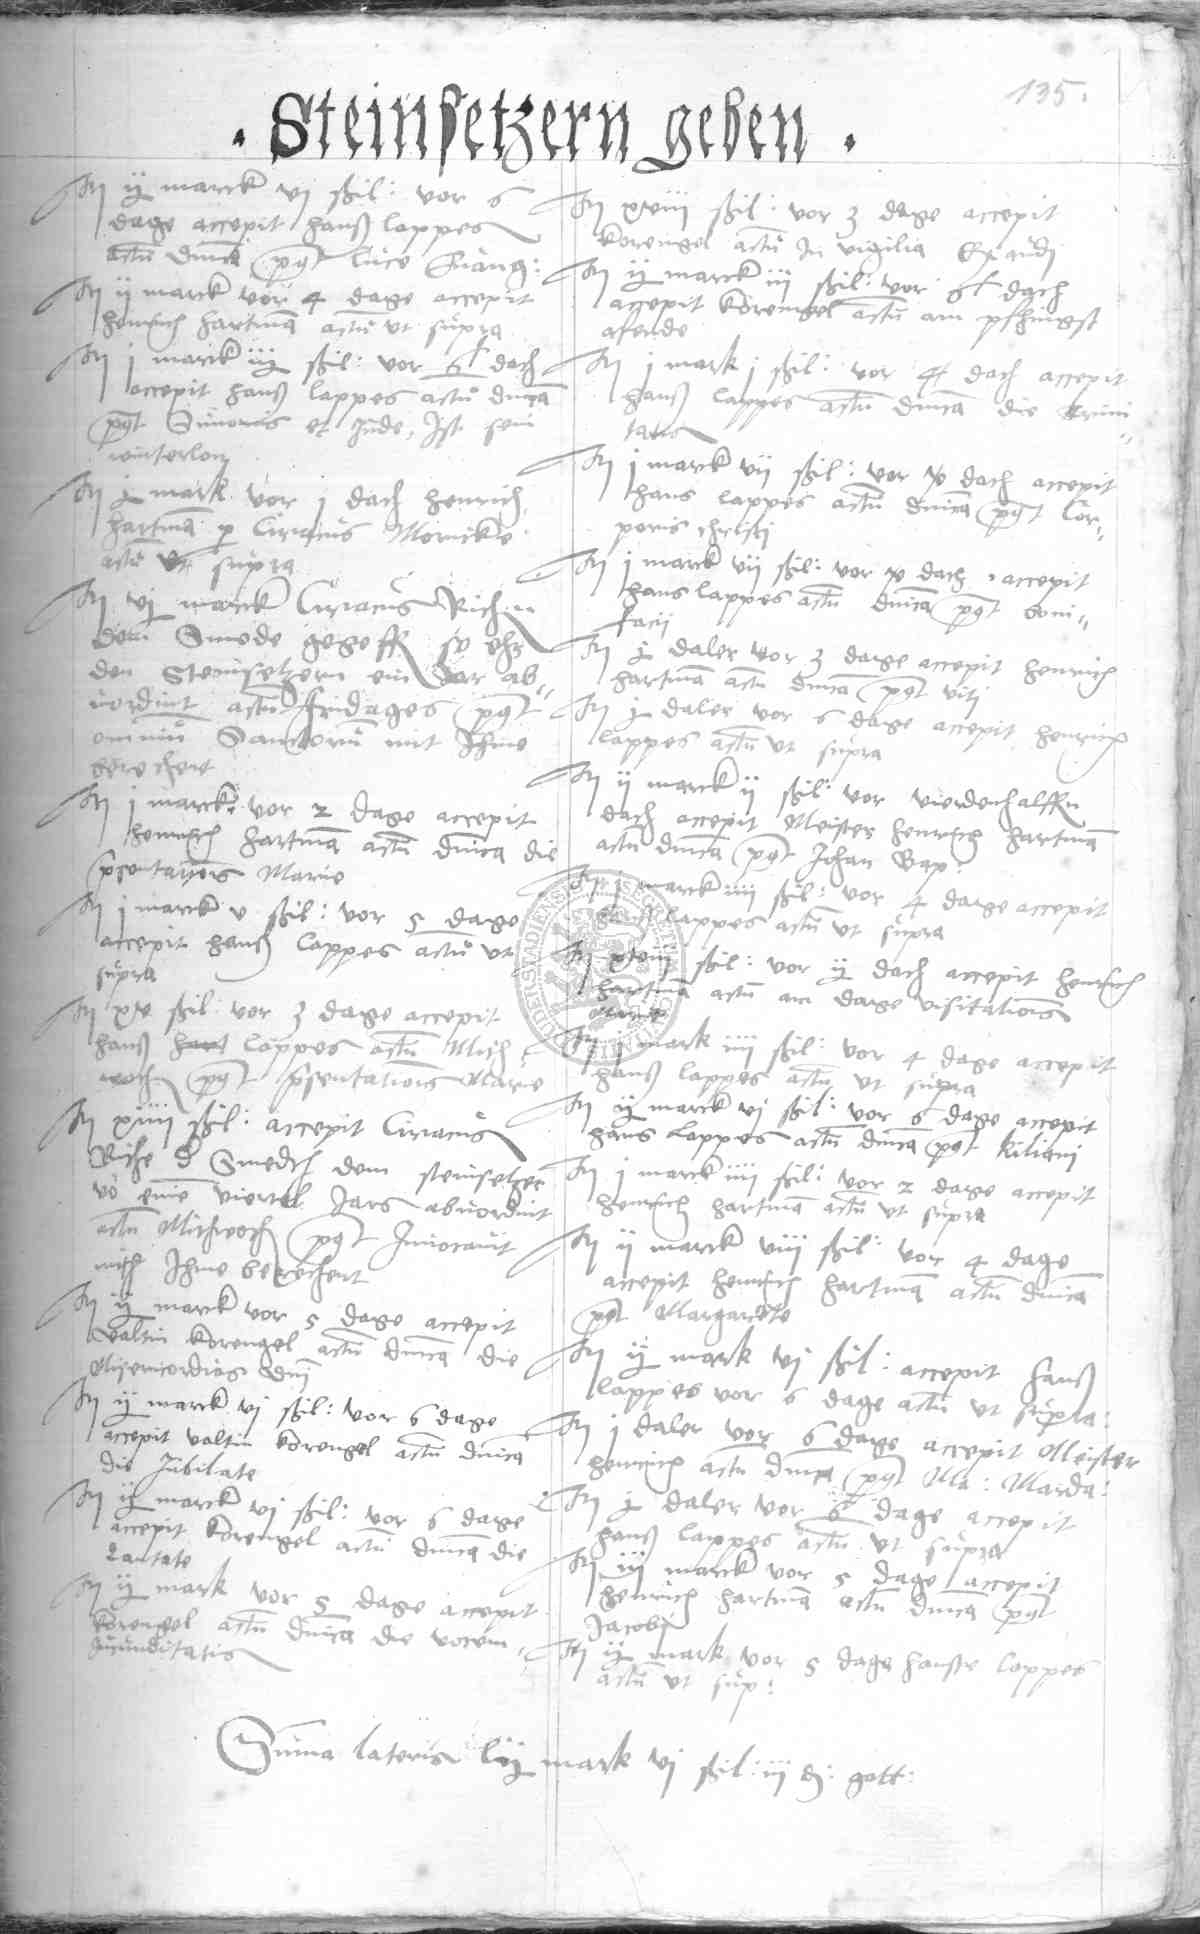 135.
. Steinsetzern geben .
It ij marck vj ßil: vor 6
dage accepit Hanß Lappes
actũ dnica pꝯt Luce Euang:
It ij marck vor 4 dage accepit
Heinrich Hartmã actũ vt supra
It j marck iij ßil: vor dach
accepit Hanß Lappes actũ dnica
pꝯt Simonis et Jude, Ist sein
winterlon
It mark vor j dach Henrich
Hartmã p Ciriacus Mornickle
actũ vt supra
It vj marck Ciriacus Richen
dem Smede gegeff so ehr
den Steinsetzern ein Jar ab"
uordint actũ Fridages pꝯt
omniũ Sanctorũ mit Ihme
berechent
It j marck vor 2 dage accepit
Heinrich Hartmã actũ dnica die
pꝛsentationis Marie
It j marck v ßil: vor 5 dage
accepit Hanß Lappes actũ vt
supra
It xv ßil: vor 3 dage accepit
Hanß Lappes actũ Mich
woch pꝯt pꝛsentationis Marie
It xviij ßil: accepit Ciriacus
Riche d Smedth dem steinsetzer
vö einē viertel Jars abuordint
actũ Mithwoch pꝯt Inuocauit
mith Ihme berechent
It ij marck vor 5 dage accepit
Valtin Korengel actũ dnica die
Misericordias dnj
It ij marck vj ßil: vor 6 dage
accepit Valtin Korengel actũ dnica
die Jubilate
It ij marck vj ßil: vor 6 dage
accepit Korengel actũ dnica die
Cantate
It ij mark vor 5 dage accepit
Korengel actũ dnica die vocem"
Jucunditatis
It xviij ßil: vor 3 dage accepit
Korengel actũ In vigilia Exaudj
It ij marck iij ßil: vor dach
accepit Korengel actũ am pfhingst
afende
It j mark j ßil: vor dach accepit
Hanß Lappes actũ dnica die trini"
tatis
It j marck vij ßil: vor dach accepit
Hans Lappes actũ dnica pꝯt Cor"
poris christi
It j marck vij ßil: vor dach accepit
Hans Lappes actũ dnica pꝯt Boni"
facij
It daler vor 3 dage accepit Henrich
Hartmã actũ dnica pꝯt Vitj
It daler vor 6 dage accepit Henrich
Lappes actũ vt supra
It ij marck ij ßil: vor vierdenhalffn
dach accepit Meister Henrich Hartmã
actũ dnica pꝯt Johan Bap:
It j marck iiij ßil: vor 4 dage accepit
Hanß Lappes actũ vt supra
It xviij ßil: vor ij dach accepit Henrich
Hartmã actũ am dage visitationis
Marie
It j mark iiij ßil: vor 4 dage accepit
Hanß Lappes actũ vt supra
It ij marck vj ßil: vor 6 dage accepit
Hans Lappes actũ dnica pꝯt Kiliani
It j marck iiij ßil: vor 2 dage accepit
Henrich Hartmã actũ vt supra
It ij marck viij ßil: vor 4 dage
accepit Henrich Hartmã actũ dnica
pꝯt Margarete
It ij mark vj ßil: accepit Hanß
Lappes vor 6 dage actũ vt supra:
It j daler vor 6 dage accepit Meister
Henrich actũ dnica pꝯt Ma: Magda:
It daler vor 6 dage accepit
Hanß Lappes actũ vt supra
It iij marck vor 5 dage accepit
Henrich Hartmã actũ dnica pꝯt
Jacobj
It ij mark vor 5 dage Hanße Lappes
actũ vt sup:
Suma lateris mark vj ßil: iij d: gott: